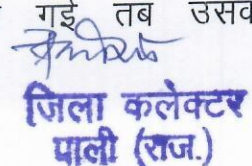 गई तब उसव
जिला कलेक्टर
पाली (राज.)